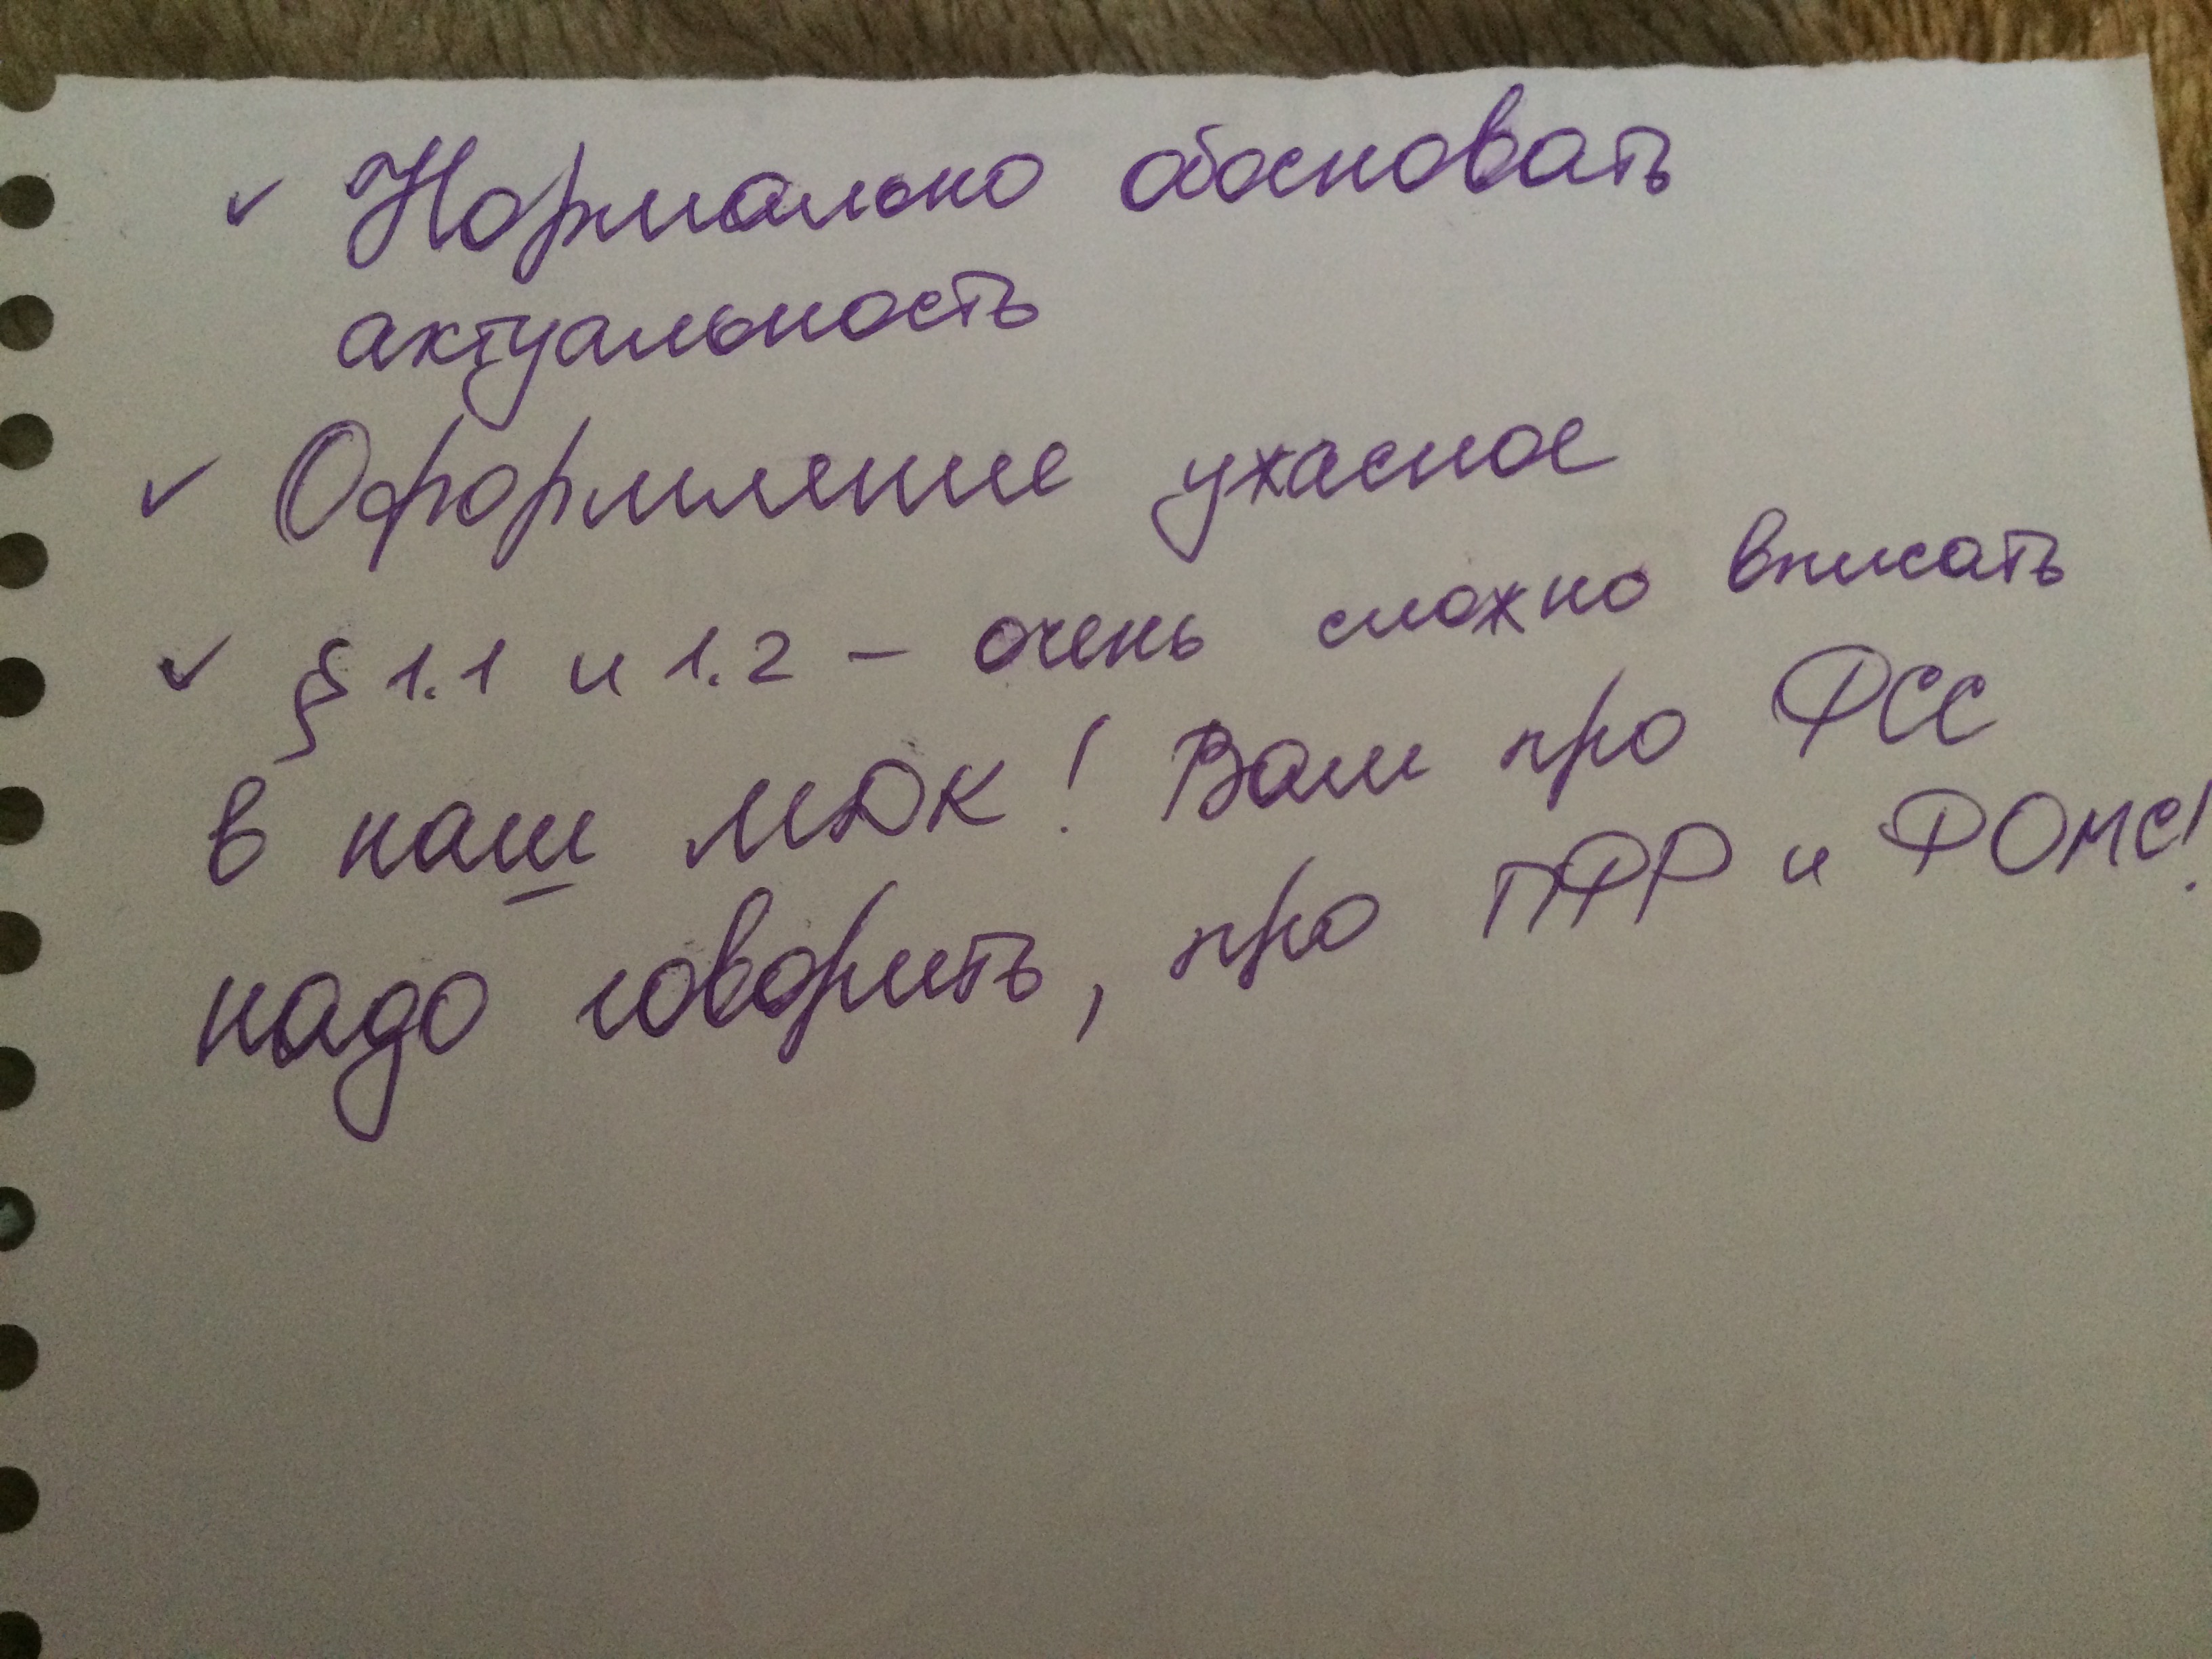 ✓ Нормально обосновать
актуальность
✓ Оформление ужасное
✓ § 1.1 и 1.2 – очень сложно вписать
в наш МДК! Вам про ФСС
надо говорить, про ПФР и ФОМС!